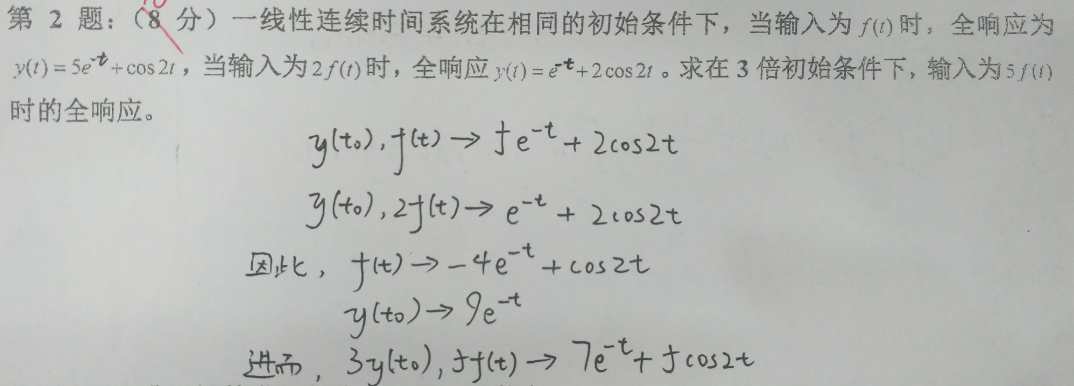 第 2 题：（8 分）一线性连续时间系统在相同的初始条件下，当输入为 f(t) 时，全响应为
y(t) = 5e^-t + cos 2t，当输入为 2f(t) 时，全响应 y(t) = e^-t + 2cos 2t。求在 3 倍初始条件下，输入为 5f(t)
时的全响应。
y(t₀), f(t) → 5e^-t + 2cos2t
y(t₀), 2f(t) → e^-t + 2cos2t
因此, f(t) → -4e^-t + cos2t
y(t₀) → 9e^-t
进而, 3y(t₀), 5f(t) → 7e^-t + 5cos2t